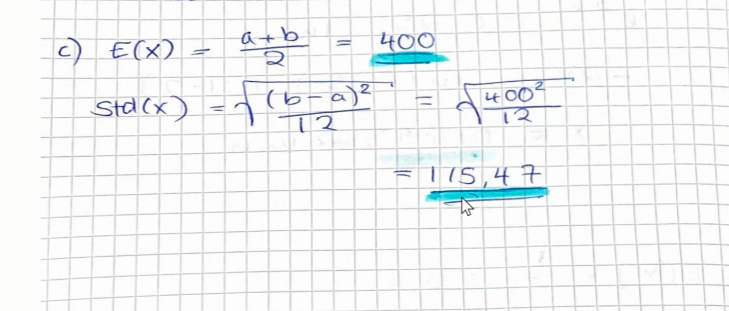 c) E(X) = a+b/2 = 400
Std(X) = √(b-a)²/12 = √400²/12
= 115,47